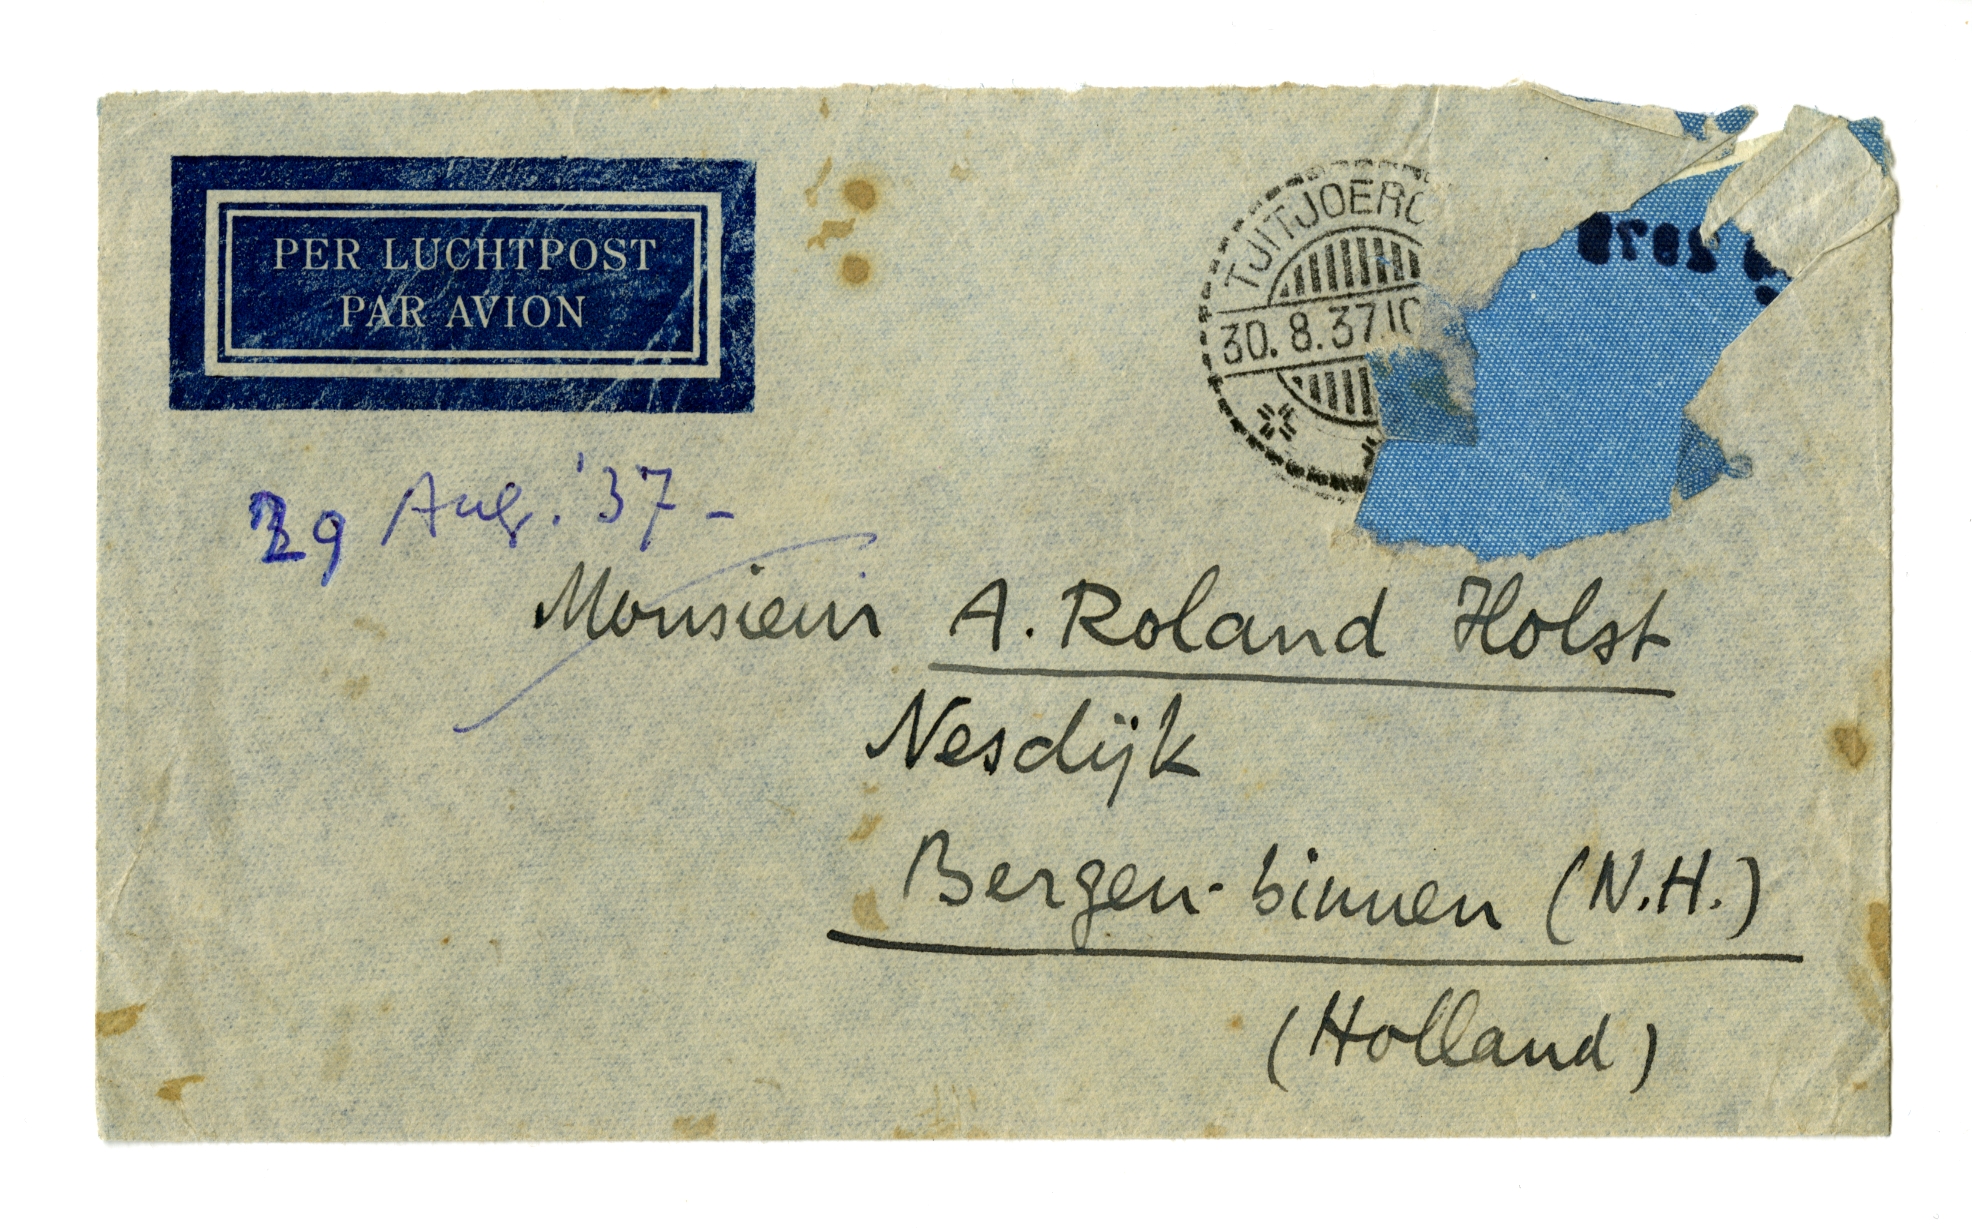 PER LUCHTPOST
PAR AVION
TJITJOERO
30.8.37.10
29 Aug. '37-
Monsieur A. Roland Holst
Nesdijk
Bergen-binnen (N.H.)
(Holland)